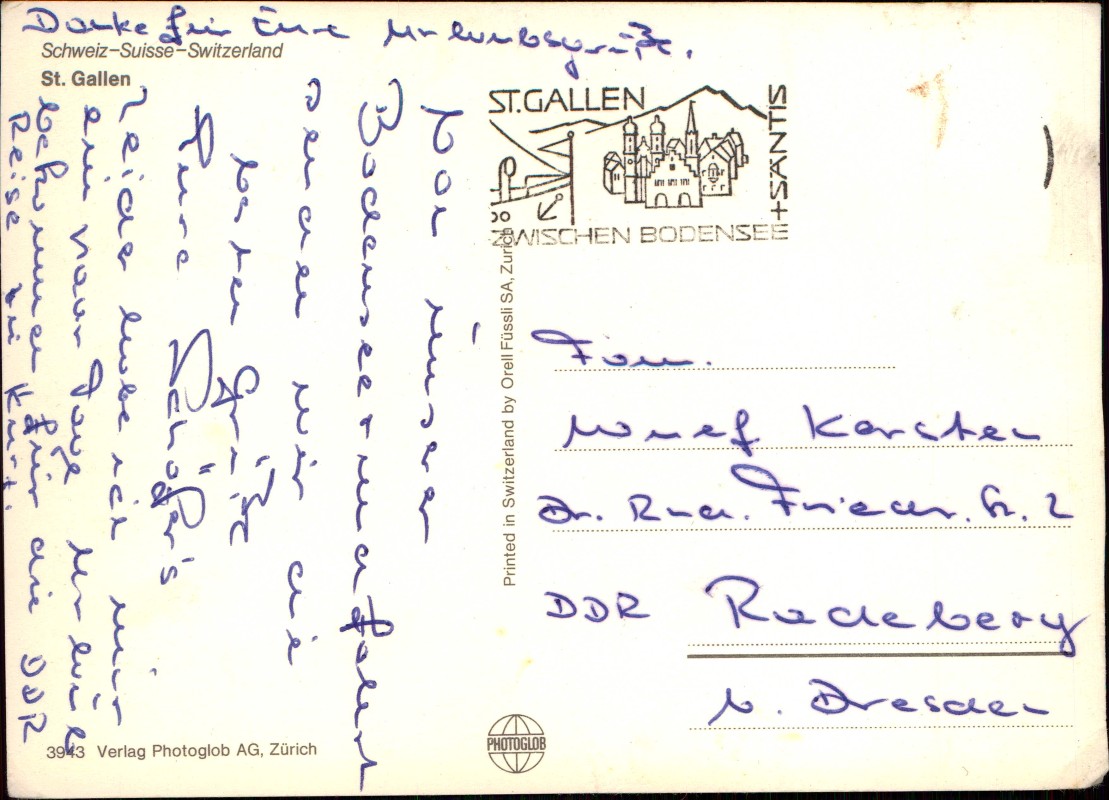 Danke für Eure Urlaubsgrüße.
Schweiz–Suisse–Switzerland
St. Gallen
Von unserer
Bodenseerundfahrt
senden wir die
besten Grüße
Eure Schäfer's
Leider habe ich nur
ein paar Tage Urlaub
bekommen für die DDR
Reise zu kurz.
3943 Verlag Photoglob AG, Zürich
Printed in Switzerland by Orell Füssli SA, Zürich
PHOTOGLOB
ST. GALLEN
ZWISCHEN BODENSEE
+ SÄNTIS
Fam.
Karsten
Dr. Rud. Friedr. Str. 2
DDR Radeberg
b. Dresden